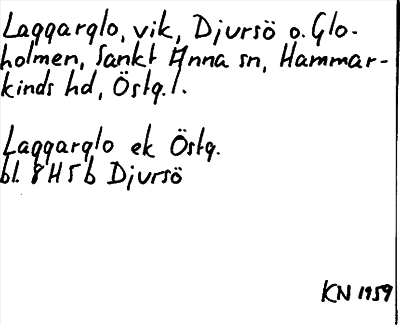 Laggarglo, vik, Djursö o. Glo-
holmen, Sankt Anna sn, Hammar-
kinds hd, Östg. l.
Laggarglo ek Östg.
bl. 8H5b Djursö
KN 1959